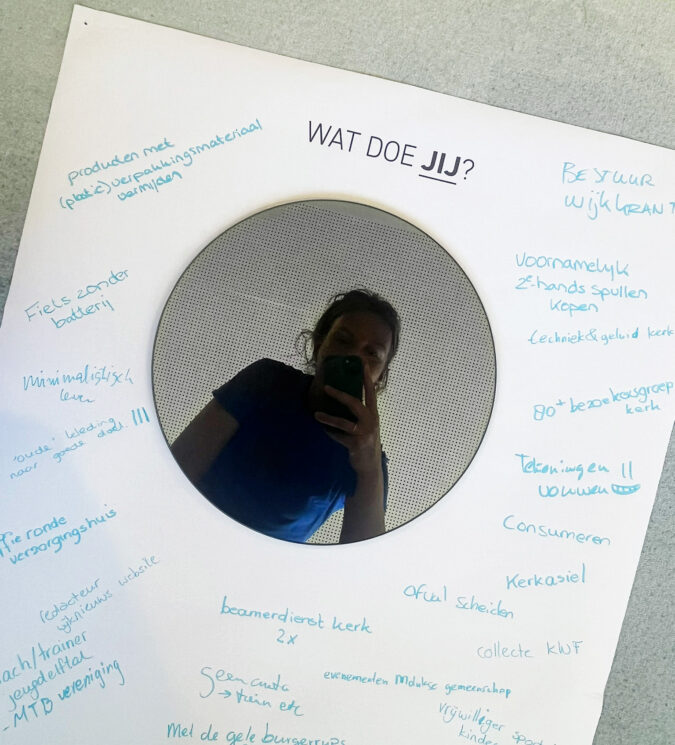 WAT DOE JIJ?
producten met
(plastic) verpakkingsmateriaal
vermijden
Fiets zonder
batterij
minimalistisch
leven
'oude' kleding
naar goede doel. |||
ronde
verzorgingshuis
redacteur
wijknieuws website
ach/trainer
jeugdelftal
-MTB vereniging
BESTUUR
WijkKRANT
Voornamelijk
2e hands spullen
kopen
techniek & geluid kerk
80+ bezoekersgroep
kerk
Tekeningen ||
vouwen
Consumeren
Kerkasiel
afval scheiden
collecte KWF
beamerdienst kerk
2x
Geen auto
→ trein etc
evenementen gemeenschap
vrijwilliger
kinder
Met de gele